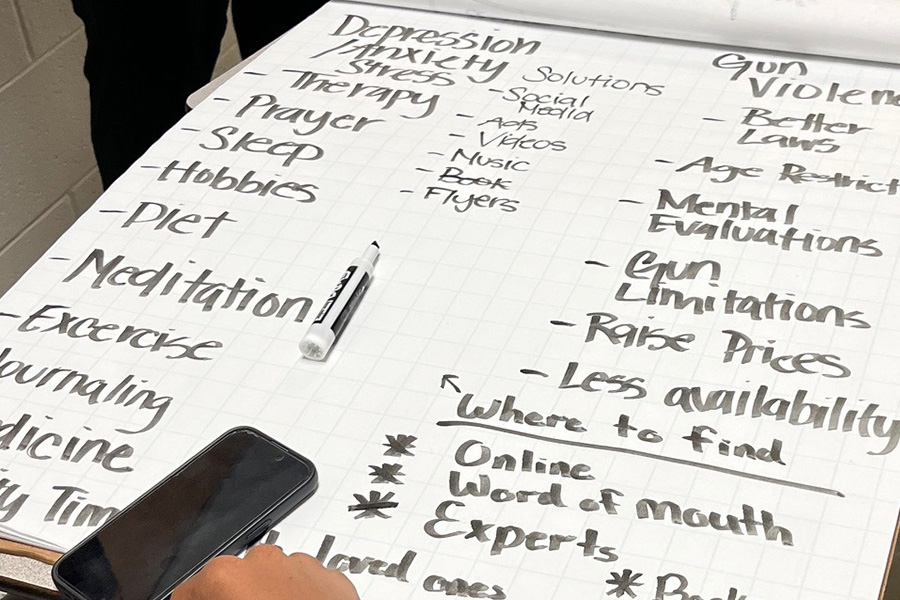 Depression
/Anxiety
Stress
- Therapy
- Prayer
- Sleep
- Hobbies
- Diet
- Meditation
- Excercise
Journaling
Solutions
- Social
Media
- Ads
- Videos
- Music
- Book
- Flyers
Gun
- Better
Laws
- Age
- Mental
Evaluations
- Gun
Limitations
- Raise Prices
- Less availability
Where to find
* Online
* Word of mouth
* Experts
loved ones
*
EXPO